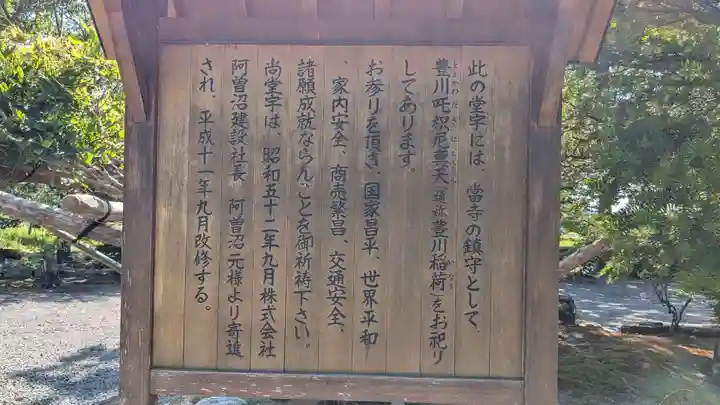 此の堂宇には、當寺の鎮守として、
豊川吒枳尼真天「通称豊川稲荷」をお祀り
してあります。
お参りを頂き、国家昌平、世界平和
、家内安全、商売繁昌、交通安全、
諸願成就ならんことを御祈祷下さい。
尚堂宇は、昭和五十二年九月株式会社
阿曽沼建設社長 阿曽沼元様より寄進
され、平成十一年九月改修する。